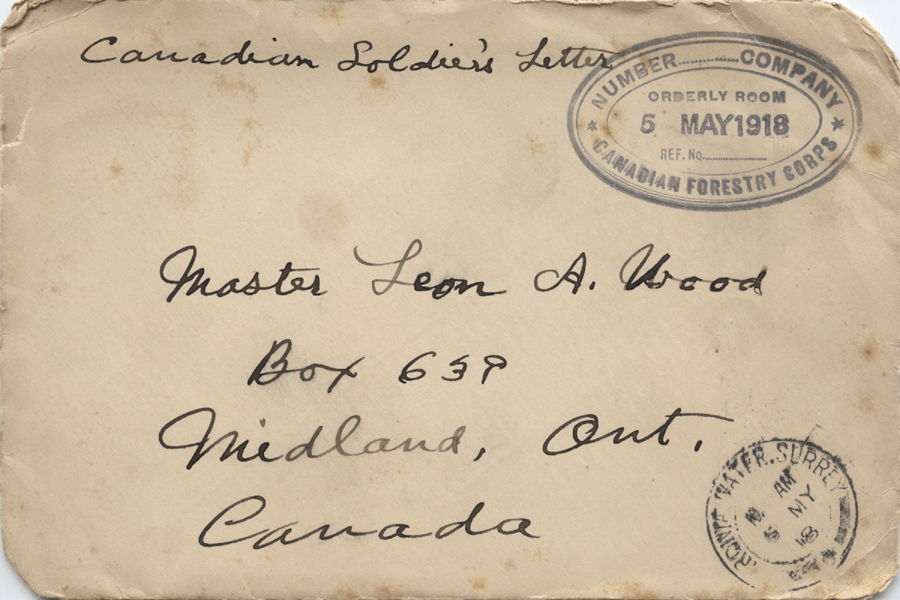 Canadian Soldier's Letter
NUMBER..............COMPANY
ORDERLY ROOM
5 MAY 1918
REF. No.
CANADIAN FORESTRY CORPS
Master Leon A. Wood
Box 639
Midland, Ont.
Canada
WATER. SURREY
AM
MY
18